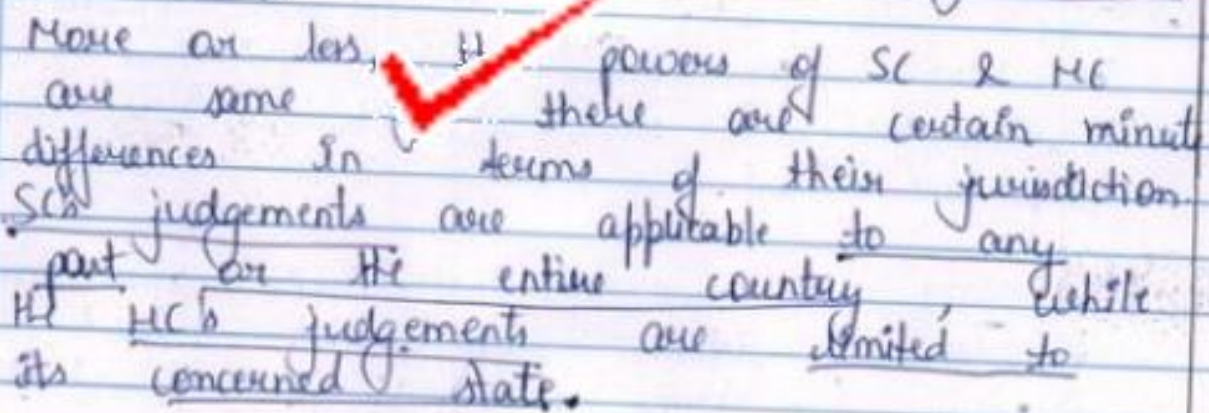 More or less, the powers of SC & HC
are same there are certain minut
differences in terms of their jurisdiction.
SC's judgements are applicable to any
part or the entire country, while
the HC's judgements are limited to
its concerned state.